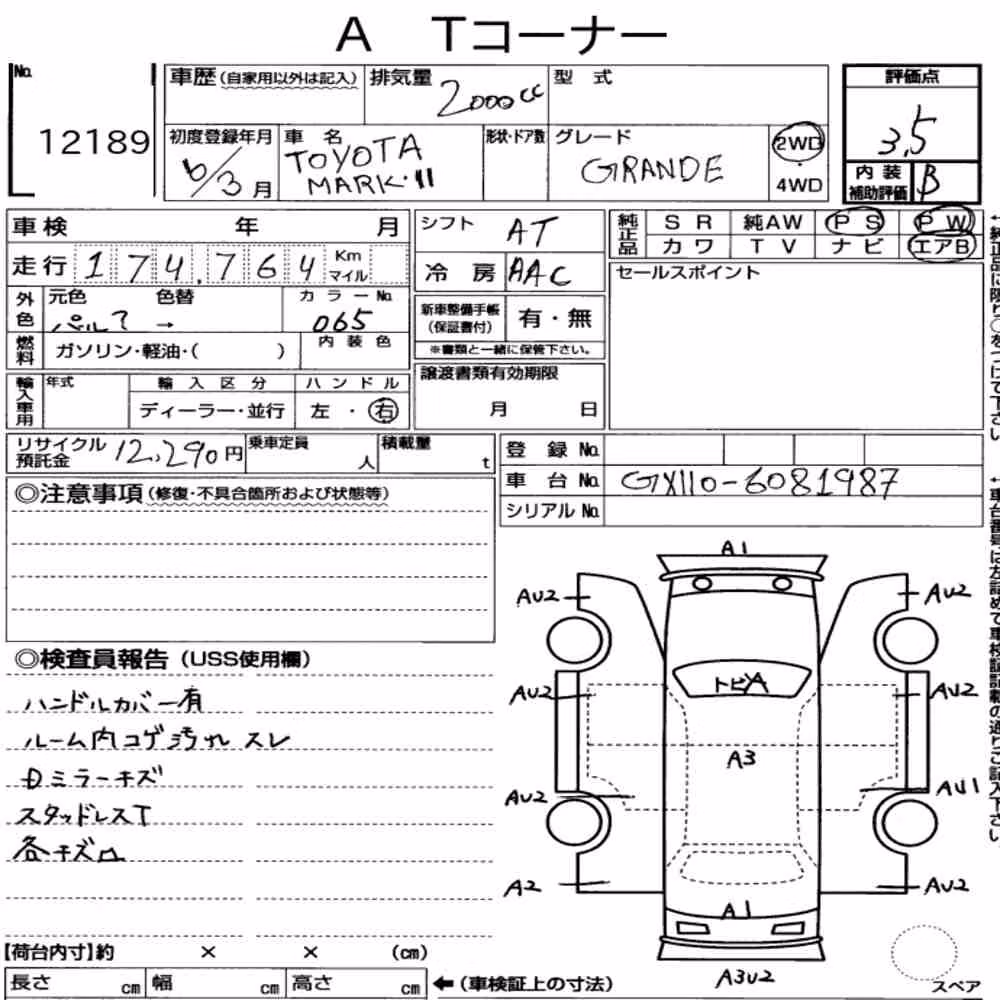 A Tコーナー
No. 12189
車歴(自家用以外は記入) 排気量 2000cc 型式
初度登録年月 6/3月 車名 TOYOTA MARK・II 形状・ドア数 グレード GRANDE 2WD・4WD
評価点 3.5
内装補助評価 B
車検 年 月
走行 174,764 Km マイル
外色 元色 色替 → カラーNo. 065
燃料 ガソリン・軽油・( ) 内装色
輸入車用 年式 輸入区分 ディーラー・並行 ハンドル 左・右
シフト AT
冷房 AAC
新車整備手帳(保証書付) 有・無
※書類と一緒に保管下さい。
譲渡書類有効期限
月 日
純正品 SR 純AW PS PW
カワ TV ナビ エアB
セールスポイント
リサイクル預託金 12,290円 乗車定員 人 積載量 t
登録No.
車台No. GX110-6081987
シリアルNo.
◎注意事項(修復・不具合箇所および状態等)
◎検査員報告(USS使用欄)
ハンドルカバー有
ルーム内コゲ汚れ スレ
Dミラーキズ
スタッドレスT
各キズ凹
A1
AU2 AU2
トビA
AU2 AU2
A3
AU2 AU1
A2 AU2
A1
A3U2
スペア
【荷台内寸】約 × × (cm)
長さ cm 幅 cm 高さ cm ←(車検証上の寸法)
←純正品に限り○をつけて下さい
←車台番号は左詰めで車検証記載の通りご記入下さい。